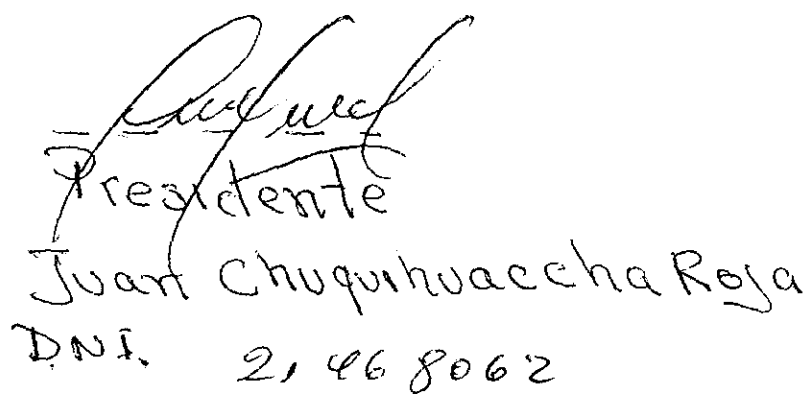 Presidente
Juan Chuquihuaccha Roja
D.N.I. 21468062